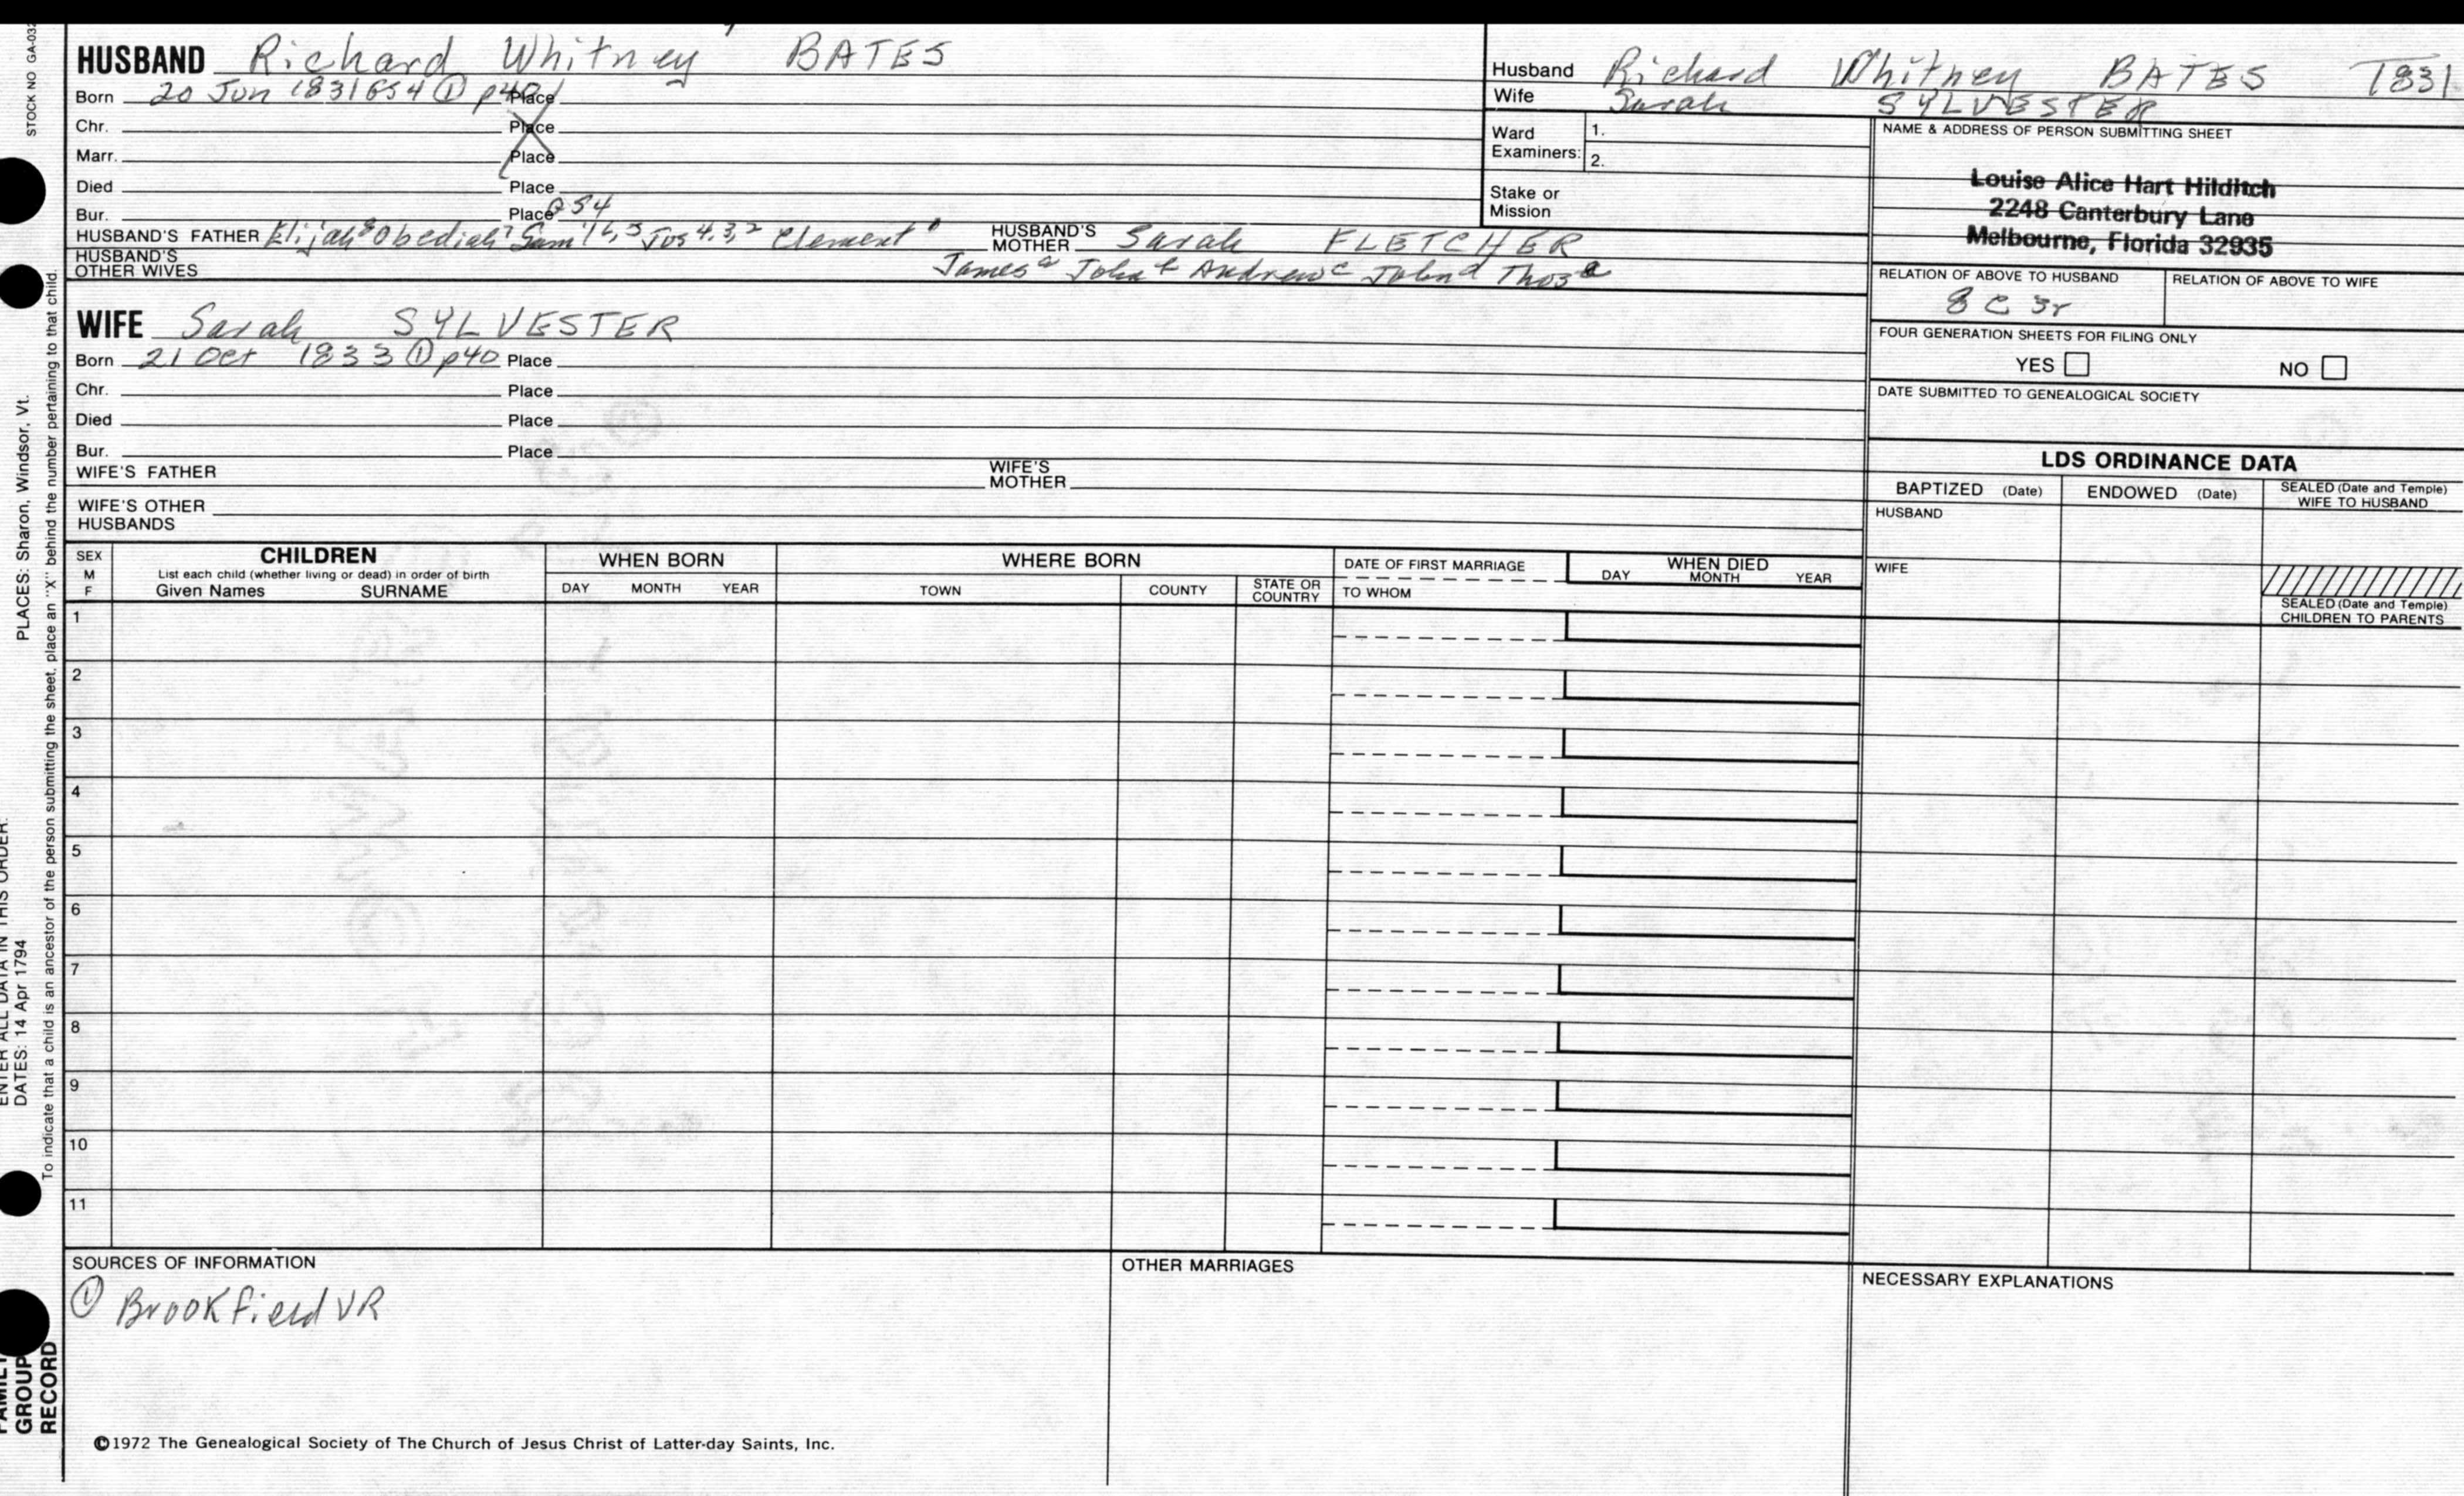 HUSBAND Richard Whitney BATES
Born 20 Jun 1831 654 ① p40 Place
Chr. Place
Marr. Place
Died Place
Bur. Place 254
HUSBAND'S FATHER Elijah⁸ Obediah⁷ Sam'l 6, 5 Jos 4, 3, 2 Clement¹ HUSBAND'S MOTHER Sarah FLETCHER
HUSBAND'S OTHER WIVES James John Andrew John Thos
WIFE Sarah SYLVESTER
Born 21 Oct 1833 ① p40 Place
Chr. Place
Died Place
Bur. Place
WIFE'S FATHER WIFE'S MOTHER
WIFE'S OTHER HUSBANDS
Husband Richard Whitney BATES 1831
Wife Sarah SYLVESTER
Ward Examiners: 1.
2.
Stake or Mission
NAME & ADDRESS OF PERSON SUBMITTING SHEET
Louise Alice Hart Hilditch
2248 Canterbury Lane
Melbourne, Florida 32935
RELATION OF ABOVE TO HUSBAND RELATION OF ABOVE TO WIFE
8 C 3r
FOUR GENERATION SHEETS FOR FILING ONLY
YES NO
DATE SUBMITTED TO GENEALOGICAL SOCIETY
LDS ORDINANCE DATA
BAPTIZED (Date) ENDOWED (Date) SEALED (Date and Temple) WIFE TO HUSBAND
HUSBAND
WIFE
SEALED (Date and Temple)
CHILDREN TO PARENTS
SEX M F
CHILDREN
List each child (whether living or dead) in order of birth
Given Names SURNAME
WHEN BORN
DAY MONTH YEAR
WHERE BORN
TOWN COUNTY STATE OR COUNTRY
DATE OF FIRST MARRIAGE
TO WHOM
WHEN DIED
DAY MONTH YEAR
1
2
3
4
5
6
7
8
9
10
11
SOURCES OF INFORMATION
① Brookfield VR
OTHER MARRIAGES
NECESSARY EXPLANATIONS
©1972 The Genealogical Society of The Church of Jesus Christ of Latter-day Saints, Inc.
STOCK NO GA-032
PLACES: Sharon, Windsor, Vt.
To indicate that a child is an ancestor of the person submitting the sheet, place an "X" behind the number pertaining to that child.
ENTER ALL DATA IN THIS ORDER:
DATES: 14 Apr 1794
FAMILY
GROUP
RECORD